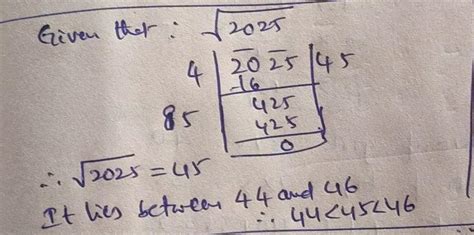 Given that : √2025
4 | 20 25 | 45
-16
425
85 | 425
0
∴ √2025 = 45
It lies between 44 and 46
∴ 44<45<46